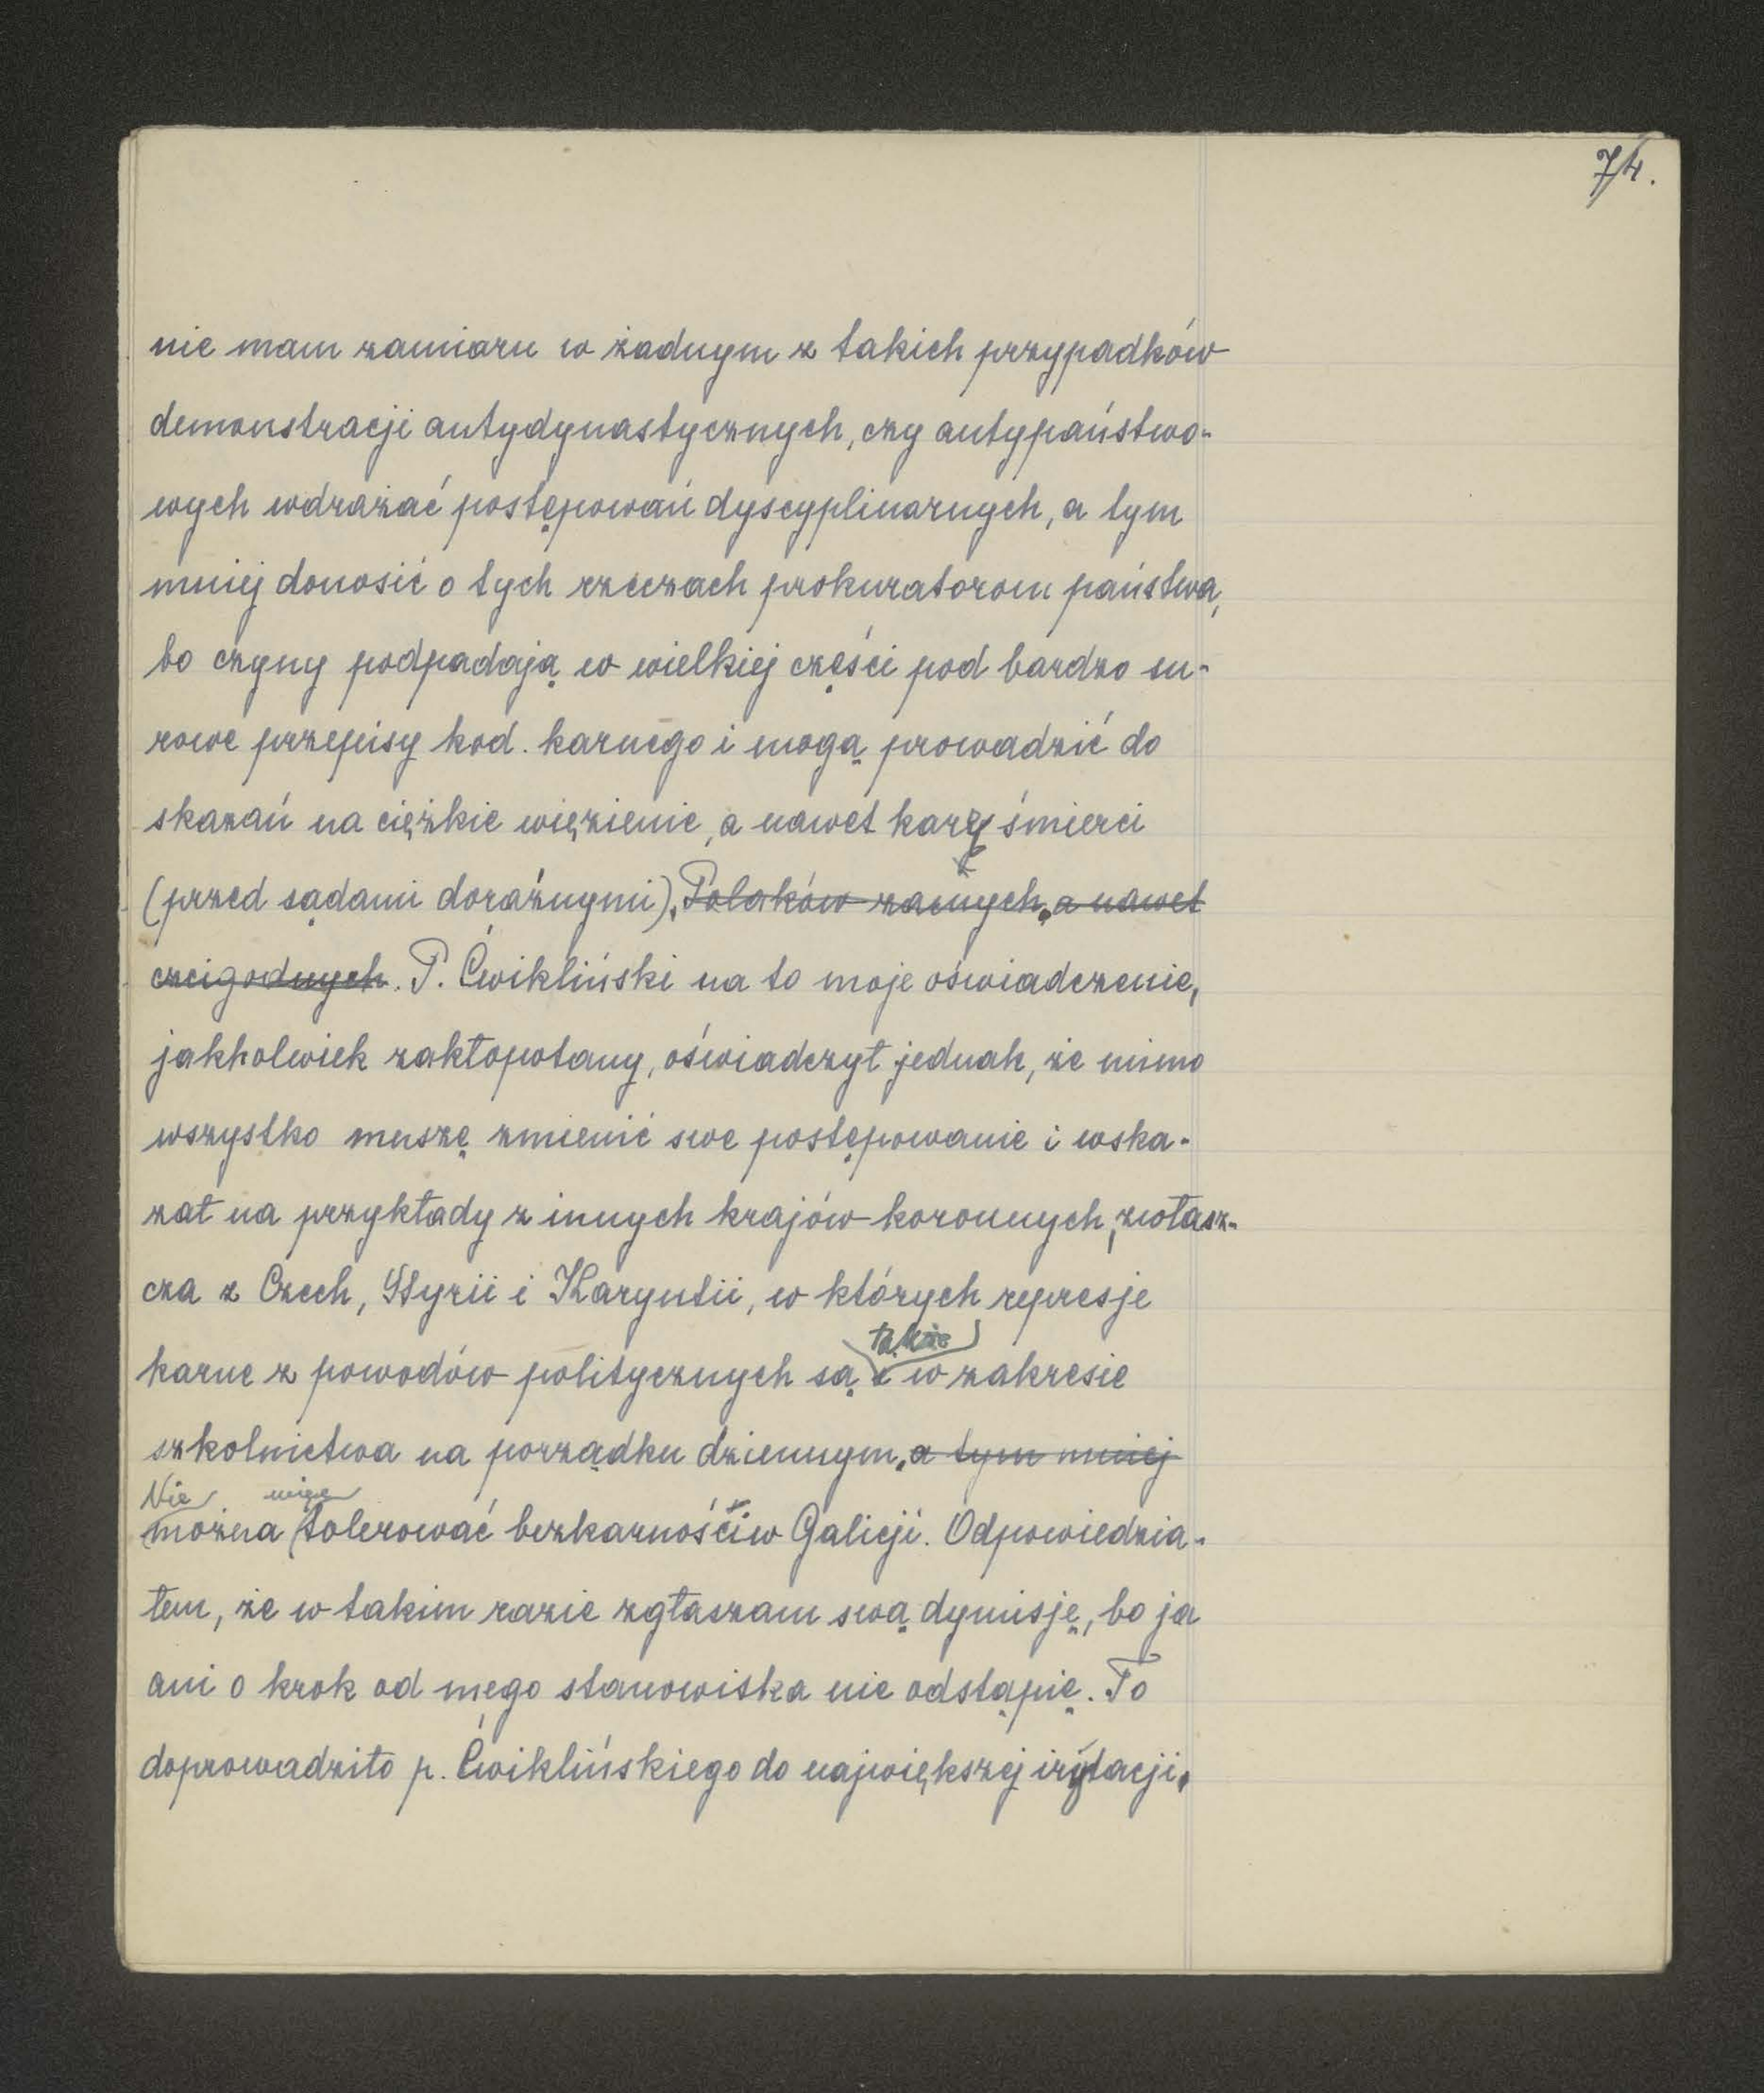 74.
nie mam zamiaru w żadnym z takich przypadków
demonstracji antydynastycznych, czy antypaństwo-
wych wdrażać postępowań dyscyplinarnych, a tym
mniej donosić o tych rzeczach prokuratorom państwa,
bo czyny podpadają w wielkiej części pod bardzo su-
rowe przepisy kod. karnego i mogą prowadzić do
skazań na ciężkie więzienie, a nawet karę śmierci
(przed sądami doraźnymi). Polaków zacnych, a nawet
czcigodnych. P. Ćwikliński na to moje oświadczenie,
jakkolwiek zakłopotany, oświadczył jednak, że mimo
wszystko muszę zmienić swe postępowanie i wska-
zał na przykłady z innych krajów koronnych, zwłasz-
cza z Czech, Styrii i Karyntii, w których represje
także
karne z powodów politycznych są i w zakresie
szkolnictwa na porządku dziennym, a tym mniej
Nie więc
można tolerować bezkarności w Galicji. Odpowiedzia-
łem, że w takim razie zgłaszam swą dymisję, bo ja
ani o krok od mego stanowiska nie odstąpię. To
doprowadziło p. Ćwiklińskiego do największej irytacji.